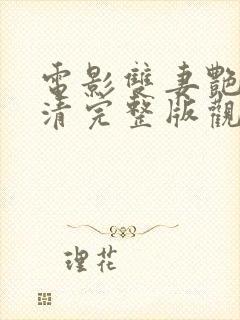 電影雙妻艷
清完整版觀
理花